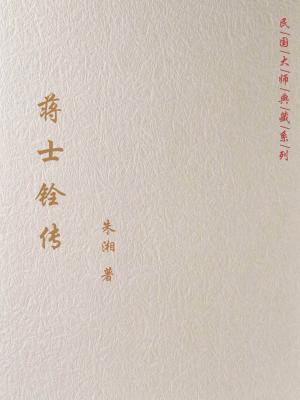 民|国|大|师|典|藏|系|列
蒋士铨传
朱湘 著